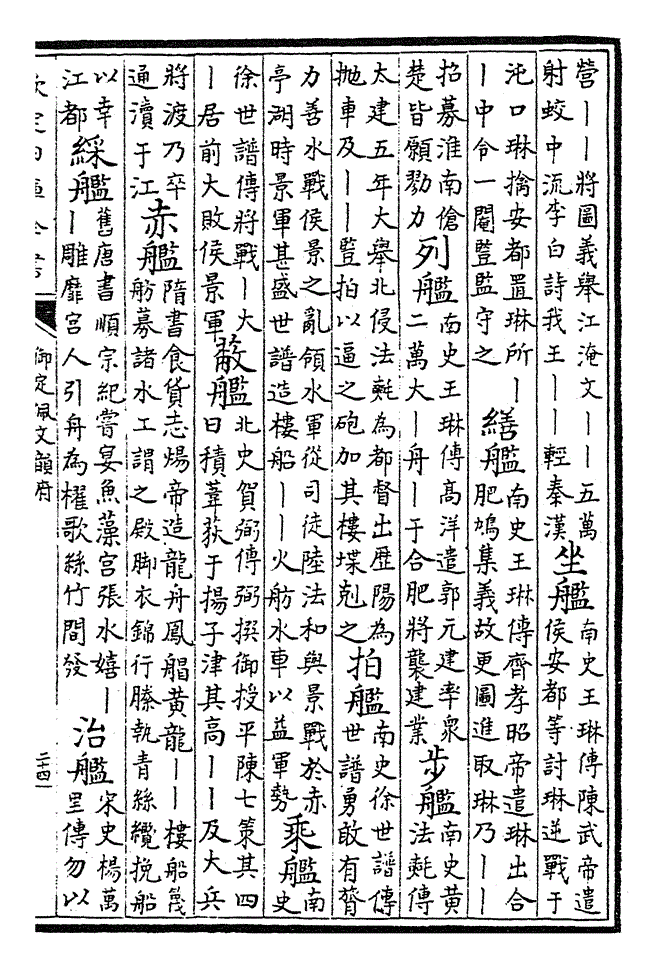 營｜｜將圖義舉江淹文｜｜五萬
射蛟中流李白詩我王｜｜輕秦漢
坐艦
南史王琳傳陳武帝遣
侯安都等討琳逆戰于
沌口琳擒安都置琳所｜
｜中令一閹豎監守之
繕艦
南史王琳傳齊孝昭帝遣琳出合
肥鳩集義故更圖進取琳乃｜｜
招募淮南傖
楚皆願勠力
列艦
南史王琳傳髙洋遣郭元建率衆
二萬大｜舟｜于合肥將襲建業
步艦
南史黄
法𣰋傳
太建五年大舉北侵法𣰋為都督出歴陽為
抛車及｜｜豎拍以逼之砲加其樓堞剋之
拍艦
南史徐世譜傳
世譜勇敢有膂
力善水戰侯景之亂領水軍從司徒陸法和與景戰於赤
亭湖時景軍甚盛世譜造樓船｜｜火舫水車以益軍勢
乘艦
南
史
徐世譜傳將戰｜大
｜居前大敗侯景軍
蔽艦
北史賀弼傳弼撰御授平陳七策其四
曰積葦荻于揚子津其高｜｜及大兵
將渡乃卒
通瀆于江
赤艦
隋書食貨志煬帝造龍舟鳳䑽黄龍｜｜樓船篾
舫募諸水工謂之殿脚衣錦行縢執青絲纜挽船
以幸
江都
綵艦
舊唐書順宗紀嘗宴魚藻宫張水嬉｜
｜雕靡宫人引舟為櫂歌絲竹間發
治艦
宋史楊萬
里傳勿以
欽定四庫全書
御定佩文韻府
二十四